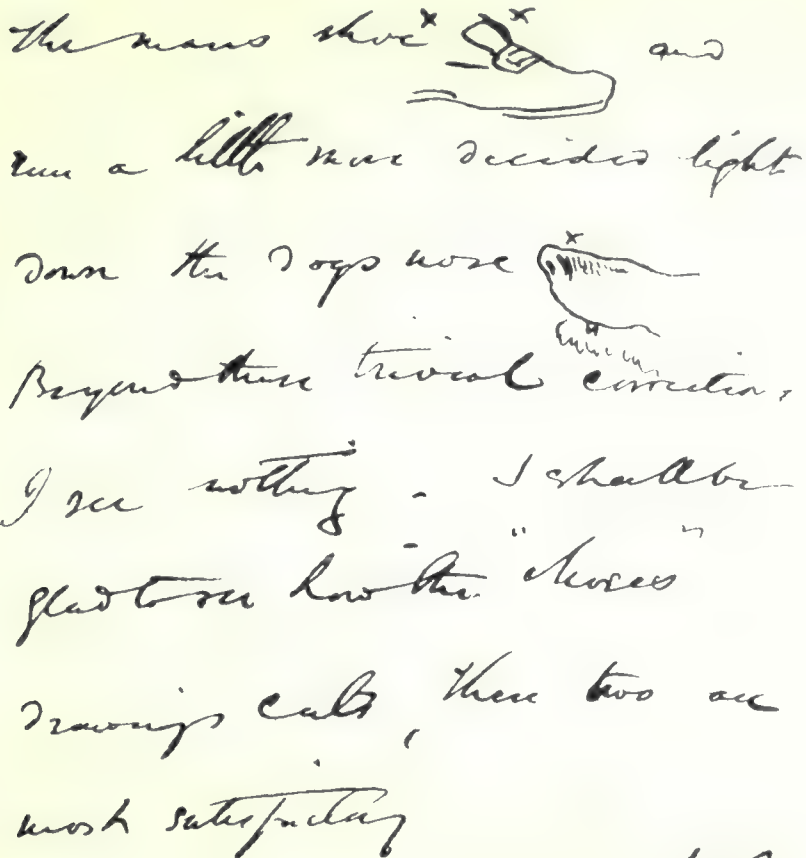 the mans shoe x x and
run a little more decided light
down the dogs nose x
Beyond these trivial corrections,
I see nothing - I shall be
glad to see how the "choices"
drawings cuts, these two are
most satisfactory